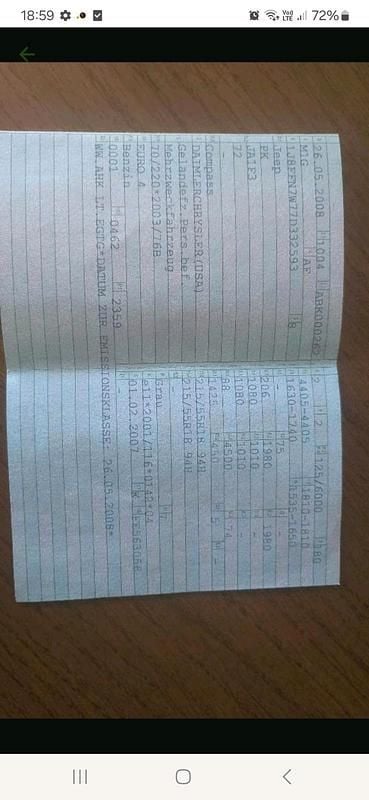 18:59
72%
26.05.2008 1004 ABK000262
M1G AF
1J8FFN7W77D332593 8
Jeep
PK
JA1F3
72
-
Compass
DAIMLERCHRYSLER(USA)
Geländefz.Pers.bef.
Mehrzweckfahrzeug
70/220*2003/76B
EURO 4
Benzin
0001 0462 2359
WW.AHK LT.EGTG*DATUM ZUR EMISSIONSKLASSE: 26.05.2008*
2 2 125/6000 180
4405-4405 1810-1810
1630-1740 1535-1650
- 75 - -
206 1980 1980
1080 1010 -
1080 1010 -
88 4500 74
1425 450 5 -
215/55R18 94H
215/55R18 94H
-
Grau 7
e11*2001/116*0142*04
01.02.2007 K
-